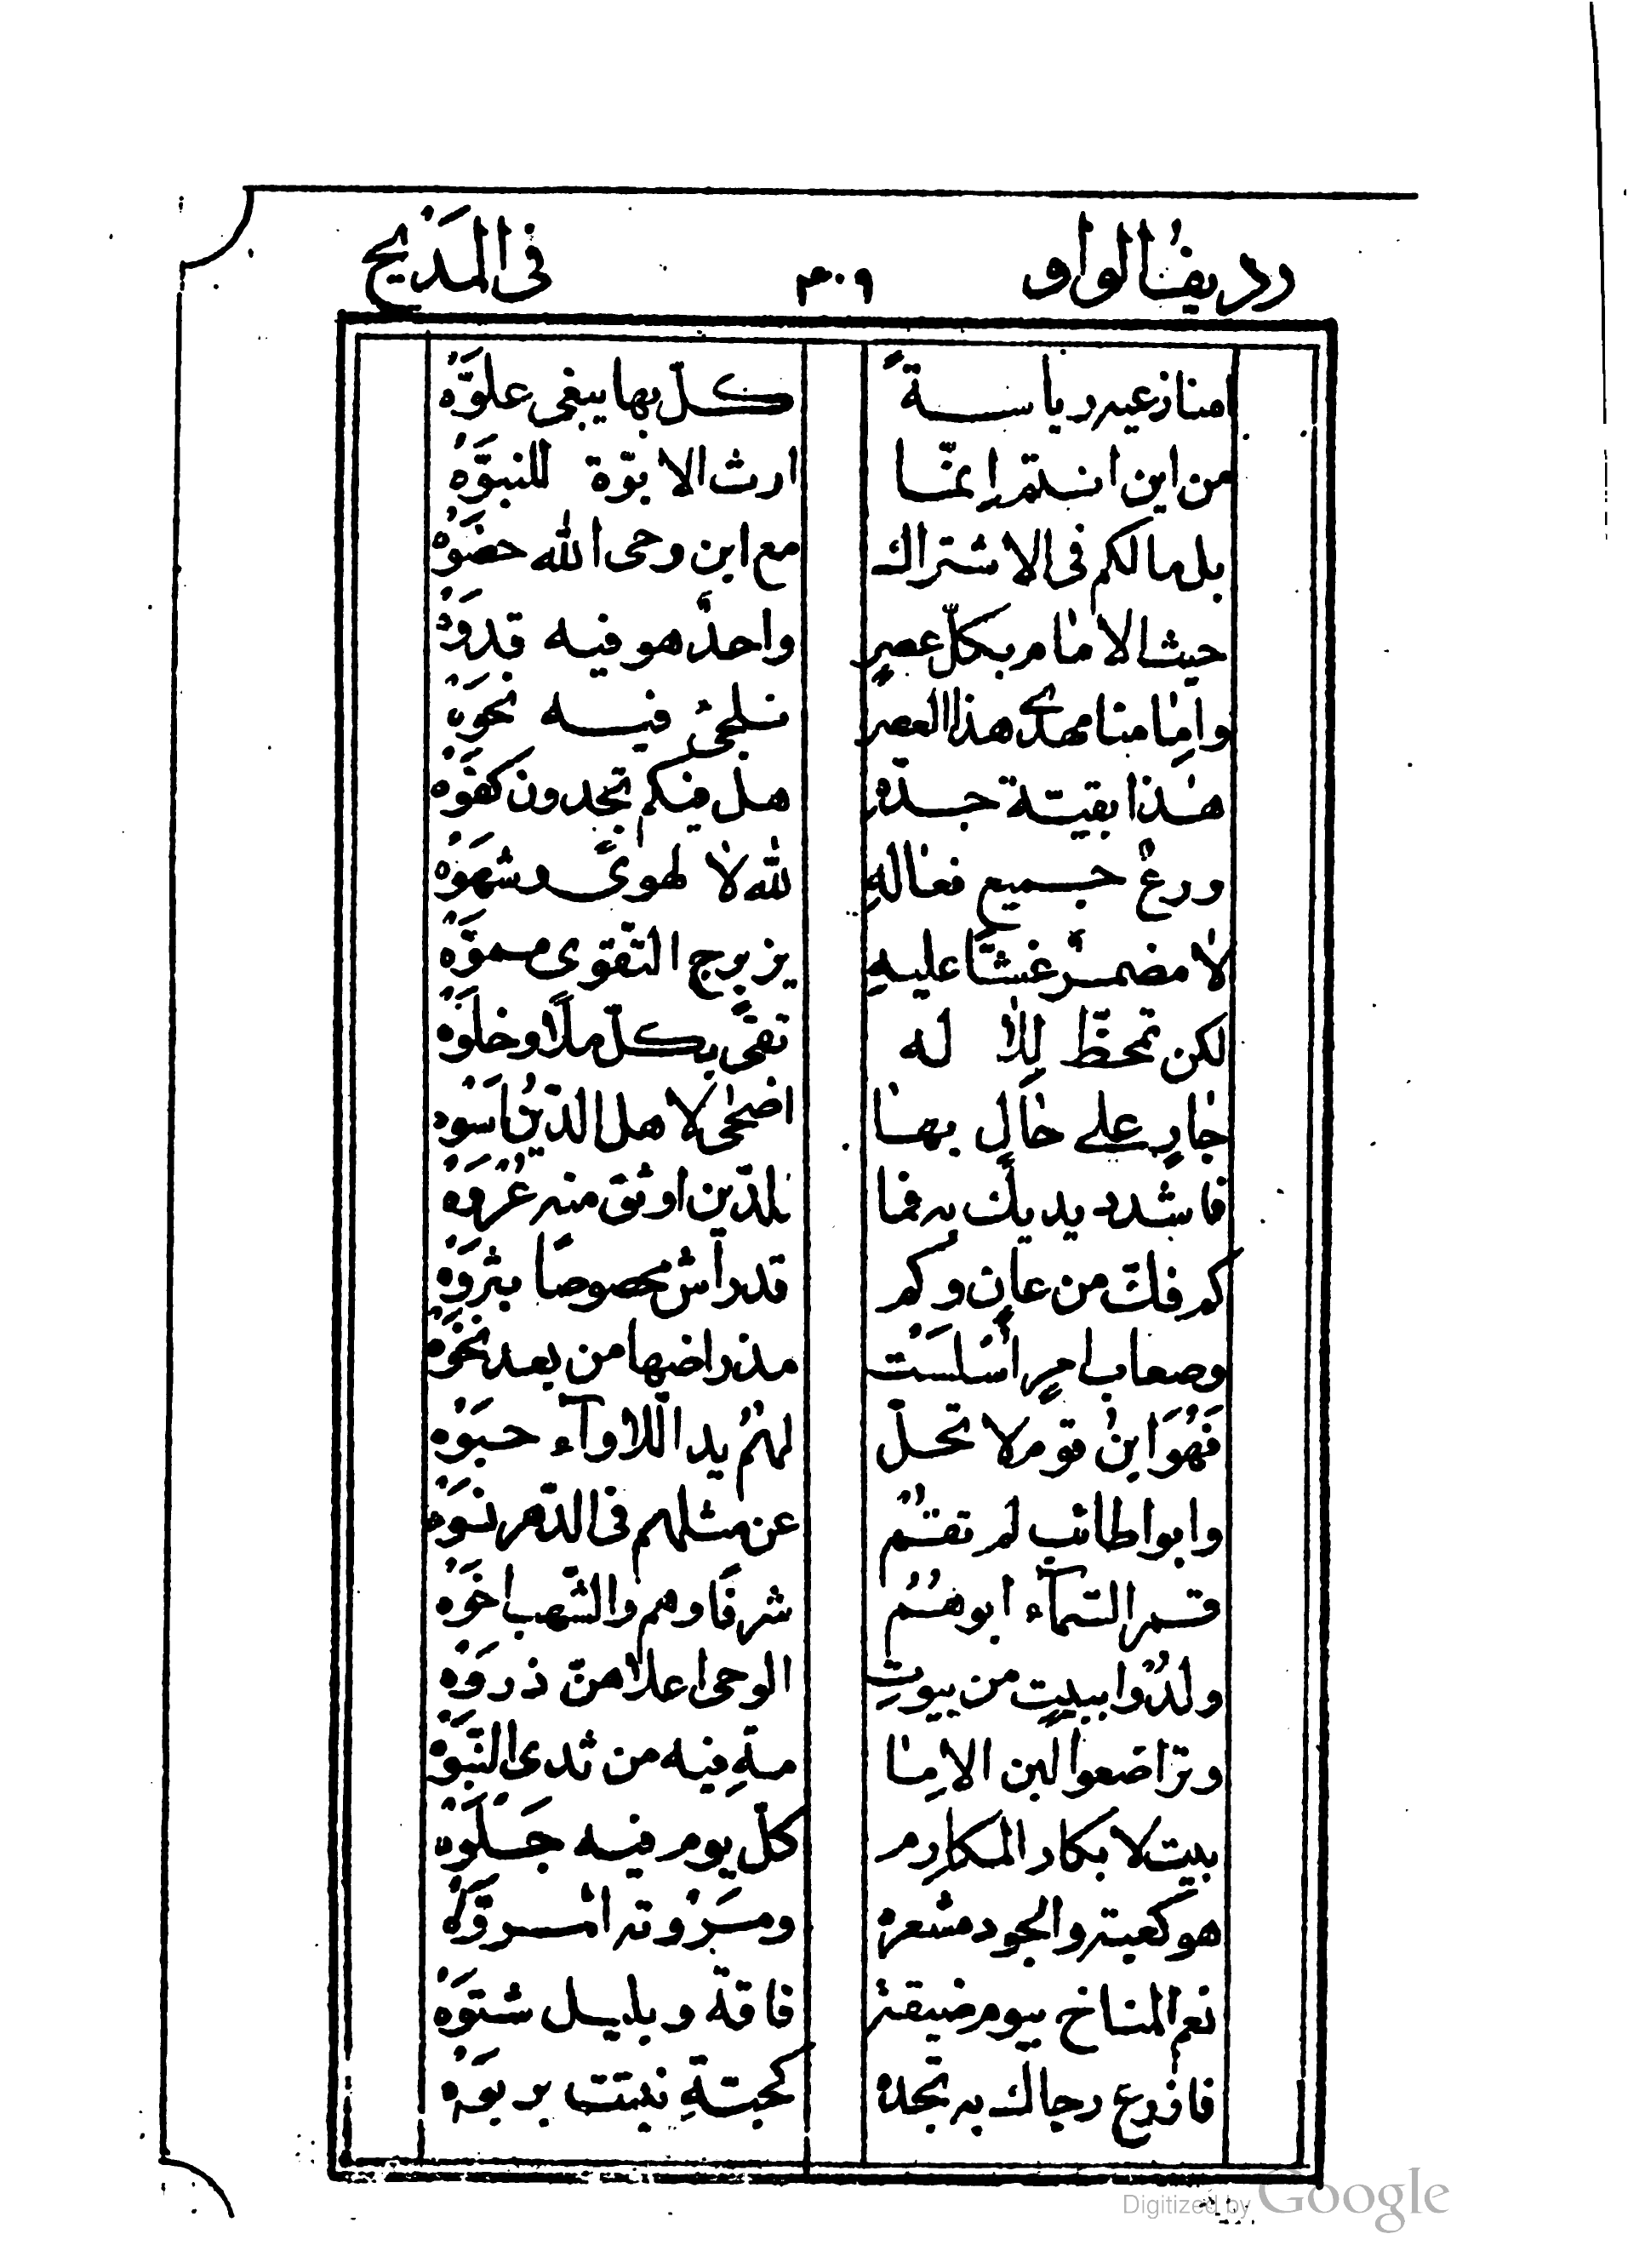 رديف الواو ٣٠٩ في المَديح
امنازعيه رياسةً كلّ بها يبغى علوَّهْ
من اين انتم انّما ارث الابوّة للنبوَّهْ
بل مالكم فى الاشتراك مع ابن وحى الله حضوَهْ
حيث الامام بكلّ عصرٍ واحدٌ هو فيه قدوَهْ
وامامنا مهدىّ هذا العصر نلجئ فيه نحوَهْ
هذا بقيّة جدّه هل فيكم تجدون كفوَهْ
ورعٌ جميع فعالهِ لله لا لهوىً وشهوَهْ
لا مضمرٌ غشّاً عليهِ بزبرج التقوى مموَّهْ
لكن تمحّظ للاله تقىً بكلّ ملاً وخلوَهْ
جارٍ على حالٍ بها اضحى لاهل الدّينُ اسوه
فاشدد يديك به فما للدّين اوثق منه عُروَه
كم فكّ من عانٍ وكم قد راش مخصوصاً بثروَهْ
وصعاب امرٍ أسلسَت مذ راضها من بعد نخوَهْ
فَهُوَ ابنُ قوم لا تحلّ لهُمُ يد اللاوآء حبوَهْ
وابوا طائب لم تقُم عن مثلهم فى الدّهر نسوَهْ
قمر السّمآء ابوهُمُ شرفًا وهم والشّهب اخوَهْ
ولدُوا ببيتٍ من بيوتِ الوحى اعلا منّ ذروَهْ
وتراضعوا لبن الاما مةِ فيه من ثدى النّبوَّهْ
بيت لابكار المكارم كلّ يوم فيه جَلْوَهْ
هو كعبة والجود مشعرهُ ومَرْوته المسروَّهْ
نعم المناخ بيوم ضيقة فاقة وبليل شتوَهْ
فازرع رجاك به تجده كحبّةِ نبتت بربوَهْ
Digitized by Google